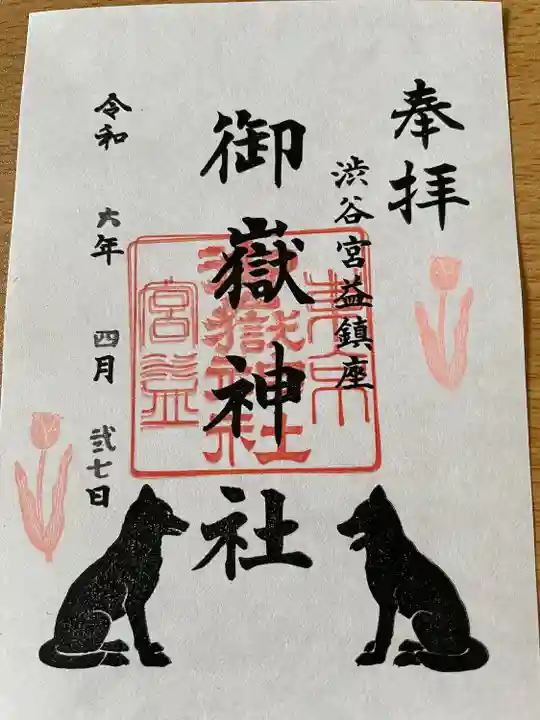 奉拝
渋谷宮益鎮座
御嶽神社
東京
御嶽神社
宮益
令和 六年 四月 弐七日